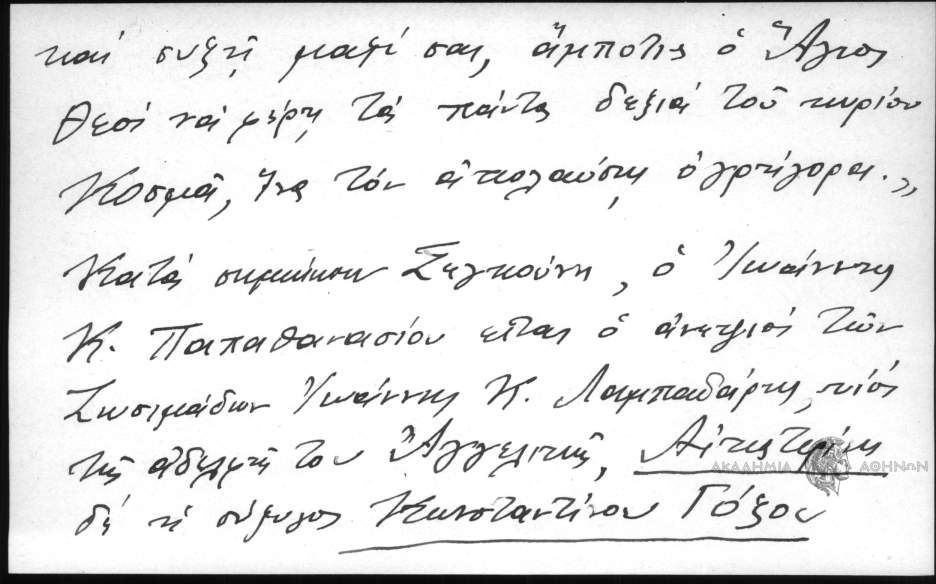 καί συζῆ μαζί σας, ἄμποτες ὁ Ἅγιος
Θεός νά φέρῃ τά πάντα δεξιά τοῦ κυρίου
Κοσμᾶ, ἵνα τόν ἀπολαύσῃς ὀγρήγορα.»
Κατά σημείωσιν Σεγκούνη, ὁ Ἰωάννης
Κ. Παπαθανασίου εἶναι ὁ ἀνεψιός τῶν
Ζωσιμάδων Ἰωάννης Κ. Λαμπαδάρης, υἱός
τῆς ἀδελφῆς των Ἀγγελικῆς, Αἰκατερίνη
δέ ἡ σύζυγος Κωνσταντίνου Γόξου
ΑΚΑΔΗΜΙΑ ΑΘΗΝΩΝ